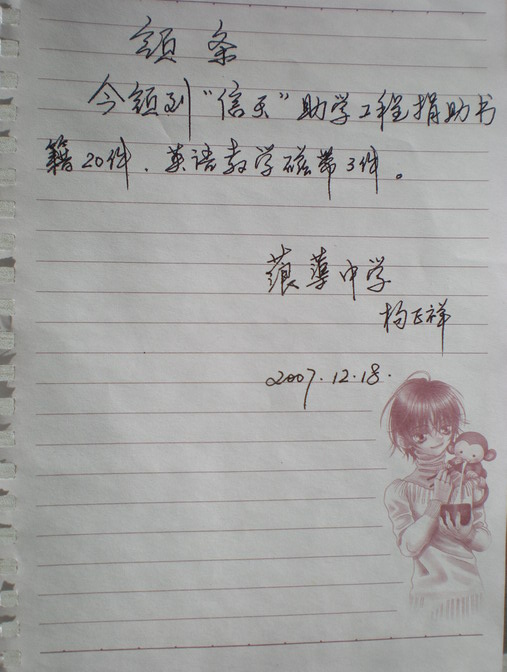 领条
今领到“信天”助学工程捐助书
籍20件、英语教学磁带3件。
蒗蕖中学
杨正祥
2007.12.18.